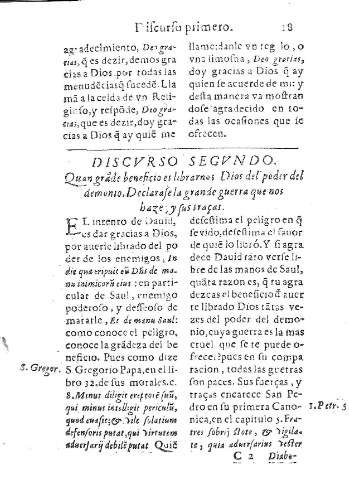 Discurso primero. 18
agradecimiento, Deo gra-
cias, q̃ es dezir, demos gra
cias a Dios por todas las
menudẽcias q̃ sucedẽ. Lla
mã a la celda de vn Reli-
gioso, y respõde, Deo gra-
cias, que es dezir, doy gra-
cias a Dios q̃ ay quiẽ me
llame: danle vn regalo, o
vna limosna, Deo gracias,
doy gracias a Dios q̃ ay
quien se acuerde de mi: y
desta manera va mostran
dose agradecido en to-
das las ocasiones que se
ofrecen.
DISCVRSO SEGVNDO.
Quan grãde beneficio es librarnos Dios del poder del
demonio. Declarase la grande guerra que nos
haze, y sus traças.
EL intento de Dauid,
es dar gracias a Dios,
por auerle librado del po
der de los enemigos, In
die qua eripuit eũ Dñs de ma
nu inimicorũ eius: en parti-
cular de Saul, enemigo
poderoso, y desseoso de
matarle, Et de manu Saul:
como conoce el peligro,
conoce la grãdeza del be
neficio. Pues como dize
S. Gregor. S Gregorio Papa, en el li
bro 32. de sus morales. c.
8. Minus diligit ereptorẽ suũ,
qui minus intelligit periculũ,
quod euasit; & vile solatium
defensoris putat, qui virtutem
aduersarij debilẽ putat Quiẽ
desestima el peligro en q̃
se vido, desestima el fauor
de quiẽ lo librò. Y si agra
dece Dauid tãto verse li-
bre de las manos de Saul,
quãta razon es, q̃ tu agra
dezcas el beneficio d̃ auer
te librado Dios tãtas ve-
zes del poder del demo-
nio, cuya guerra es la mas
cruel que se te puede o-
frecer? pues en su compa
racion, todas las guerras
son paces. Sus fuerças, y
traças encarece San Pe-
dro en su primera Cano- 1. Petr. 5
nica, en el capitulo 5. Fra-
tres sobrij stote, & vigila-
te, quia aduersarius vester
C 2 Diabo-